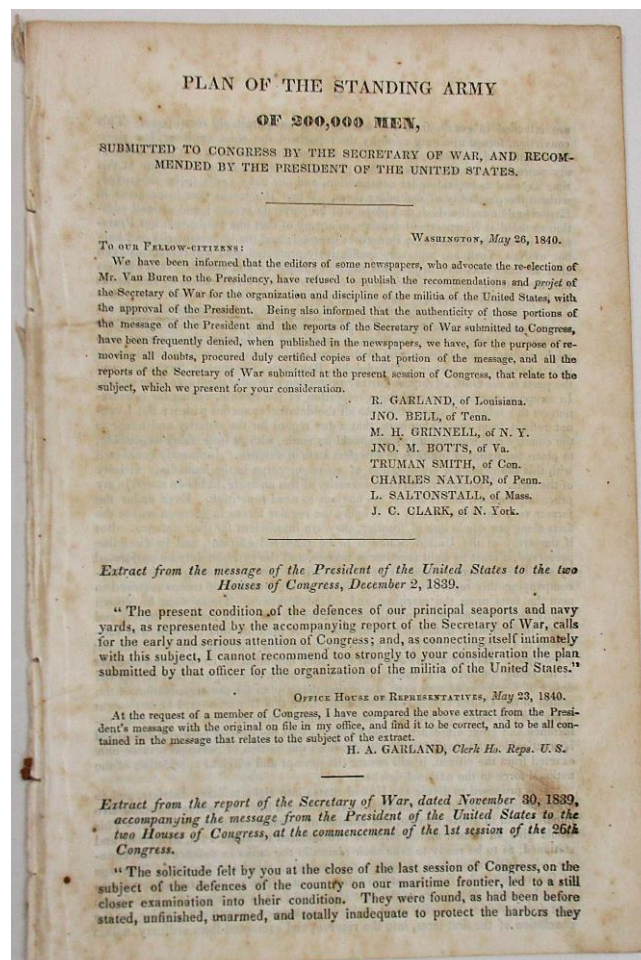 PLAN OF THE STANDING ARMY
OF 200,000 MEN,
SUBMITTED TO CONGRESS BY THE SECRETARY OF WAR, AND RECOM-
MENDED BY THE PRESIDENT OF THE UNITED STATES.
WASHINGTON, May 26, 1840.
TO OUR FELLOW-CITIZENS:
We have been informed that the editors of some newspapers, who advocate the re-election of
Mr. Van Buren to the Presidency, have refused to publish the recommendations and projet of
the Secretary of War for the organization and discipline of the militia of the United States, with
the approval of the President. Being also informed that the authenticity of those portions of
the message of the President and the reports of the Secretary of War submitted to Congress,
have been frequently denied, when published in the newspapers, we have, for the purpose of re-
moving all doubts, procured duly certified copies of that portion of the message, and all the
reports of the Secretary of War submitted at the present session of Congress, that relate to the
subject, which we present for your consideration.
R. GARLAND, of Louisiana.
JNO. BELL, of Tenn.
M. H. GRINNELL, of N. Y.
JNO. M. BOTTS, of Va.
TRUMAN SMITH, of Con.
CHARLES NAYLOR, of Penn.
L. SALTONSTALL, of Mass.
J. C. CLARK, of N. York.
Extract from the message of the President of the United States to the two
Houses of Congress, December 2, 1839.
" The present condition of the defences of our principal seaports and navy
yards, as represented by the accompanying report of the Secretary of War, calls
for the early and serious attention of Congress; and, as connecting itself intimately
with this subject, I cannot recommend too strongly to your consideration the plan
submitted by that officer for the organization of the militia of the United States."
OFFICE HOUSE OF REPRESENTATIVES, May 23, 1840.
At the request of a member of Congress, I have compared the above extract from the Presi-
dent's message with the original on file in my office, and find it to be correct, and to be all con-
tained in the message that relates to the subject of the extract.
H. A. GARLAND, Clerk Ho. Reps. U. S.
Extract from the report of the Secretary of War, dated November 30, 1839,
accompanying the message from the President of the United States to the
two Houses of Congress, at the commencement of the 1st session of the 26th
Congress.
" The solicitude felt by you at the close of the last session of Congress, on the
subject of the defences of the country on our maritime frontier, led to a still
closer examination into their condition. They were found, as had been before
stated, unfinished, unarmed, and totally inadequate to protect the harbors they